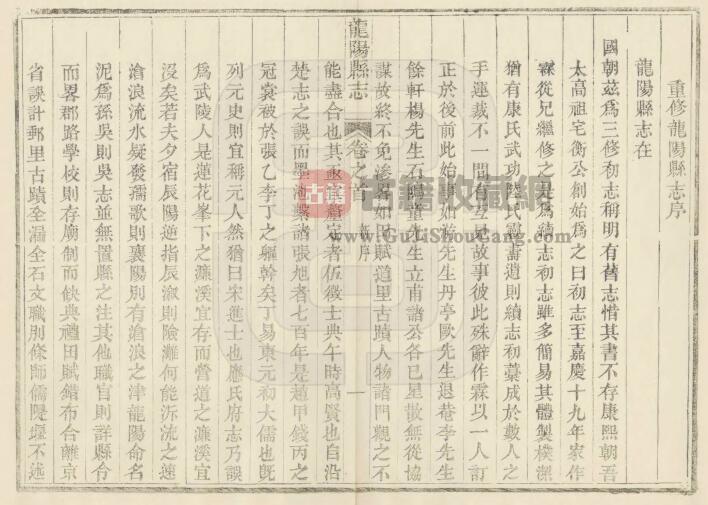 重修龍陽縣志序
龍陽縣志在
國朝茲為三修初志稱明有舊志惜其書不存康熙朝吾
太高祖宅衡公創始為之曰初志至嘉慶十九年家作
霖從兄繼修之是為續志初志雖多簡易其體製樸潔
猶有康氏武功陸氏靈壽遺則續志初藁成於數人之
手運裁不一間有互見故事彼此殊辭作霖以一人訂
正於後前此始事如 先生丹亭歐先生退菴李先生
餘軒楊先生石 先生立甫諸公各已星散無從協
謀故終不免滲畧如田賦道里古蹟人物諸門觀之不
龍陽縣志 卷之首 序 一
能盡合也其 者仮徵士典午時高賢也自沿
楚志之誤而墨池 諸張旭者七百年是趙甲錢丙之
冠裳被於張乙李丁之軀幹矣丁易東元初大儒也既
列元史則宜稱元人然猶曰宋進士也應氏府志乃誤
為武陵人是蓮花峯下之濂溪宜存而營道之濂溪宜
沒矣若夫夕宿辰陽逆指辰漵則險灘何能泝流之速
滄浪流水疑發孺歌則襄陽別有滄浪之津龍陽命名
泥為孫吳則吳志並無置縣之注其他職官則詳縣令
而畧郡路學校則存廟制而缺典禮田賦錯布合離京
省誤計郵里古蹟全漏全石文職別條師儒隄堰不述